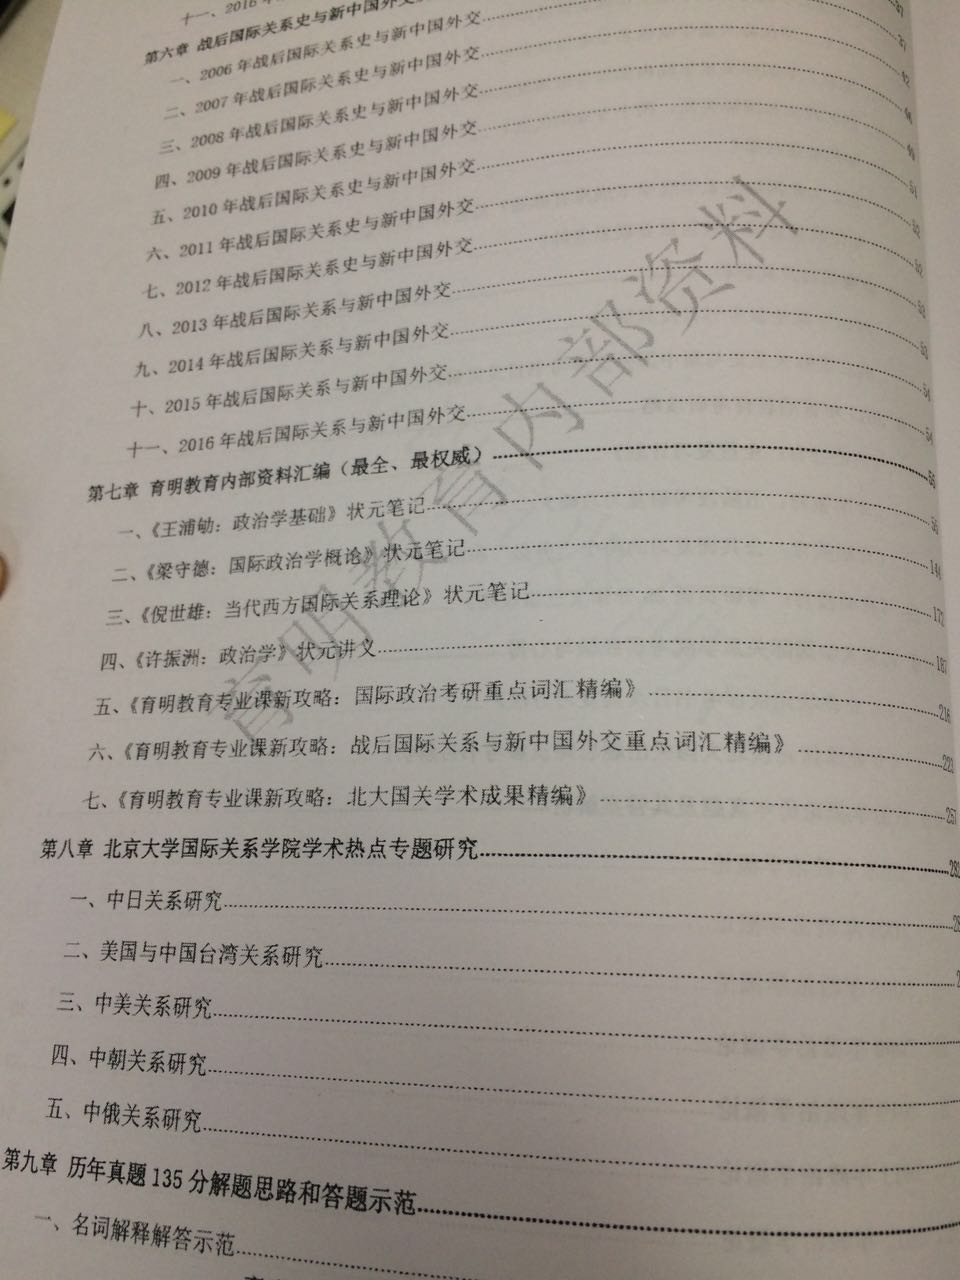 十一、2016年
第六章 战后国际关系史与新中国外交 37
一、2006年战后国际关系史与新中国外交 37
二、2007年战后国际关系史与新中国外交 42
三、2008年战后国际关系史与新中国外交
四、2009年战后国际关系史与新中国外交 49
五、2010年战后国际关系史与新中国外交 51
六、2011年战后国际关系史与新中国外交 52
七、2012年战后国际关系史与新中国外交 52
八、2013年战后国际关系与新中国外交 53
九、2014年战后国际关系与新中国外交 53
十、2015年战后国际关系与新中国外交 54
十一、2016年战后国际关系与新中国外交 54
第七章 育明教育内部资料汇编（最全、最权威） 56
一、《王浦劬：政治学基础》状元笔记 56
二、《梁守德：国际政治学概论》状元笔记 144
三、《倪世雄：当代西方国际关系理论》状元笔记 172
四、《许振洲：政治学》状元讲义 187
五、《育明教育专业课新攻略：国际政治考研重点词汇精编》 216
六、《育明教育专业课新攻略：战后国际关系与新中国外交重点词汇精编》 223
七、《育明教育专业课新攻略：北大国关学术成果精编》 257
第八章 北京大学国际关系学院学术热点专题研究
一、中日关系研究
二、美国与中国台湾关系研究
三、中美关系研究
四、中朝关系研究
五、中俄关系研究
第九章 历年真题135分解题思路和答题示范
一、名词解释解答示范
育明教育内部资料